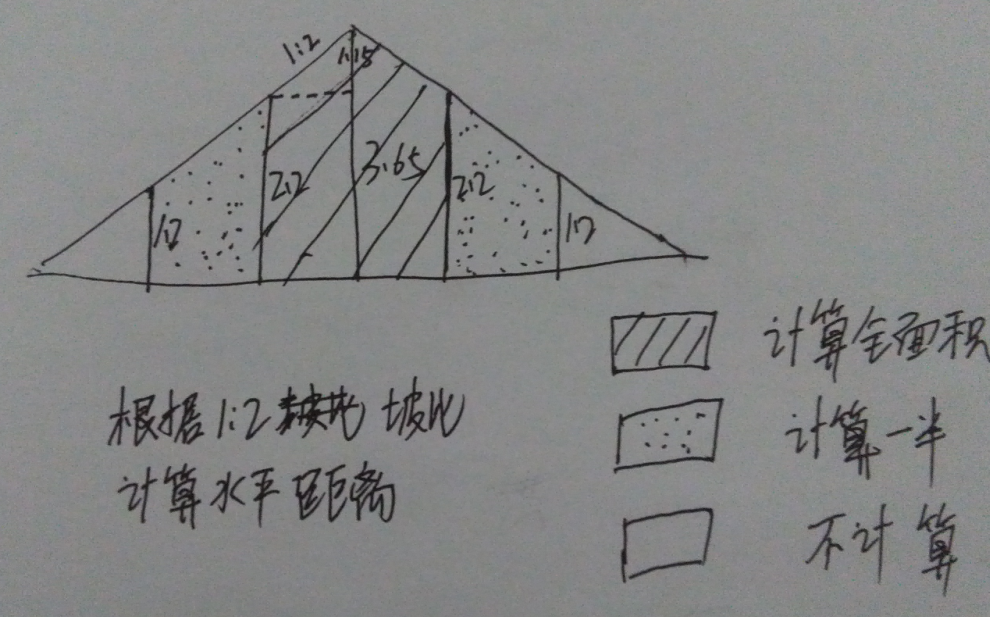 1:2
2.2
3.65
2.2
1.2
1.2
计算全面积
根据1:2坡比
计算水平距离
计算一半
不计算